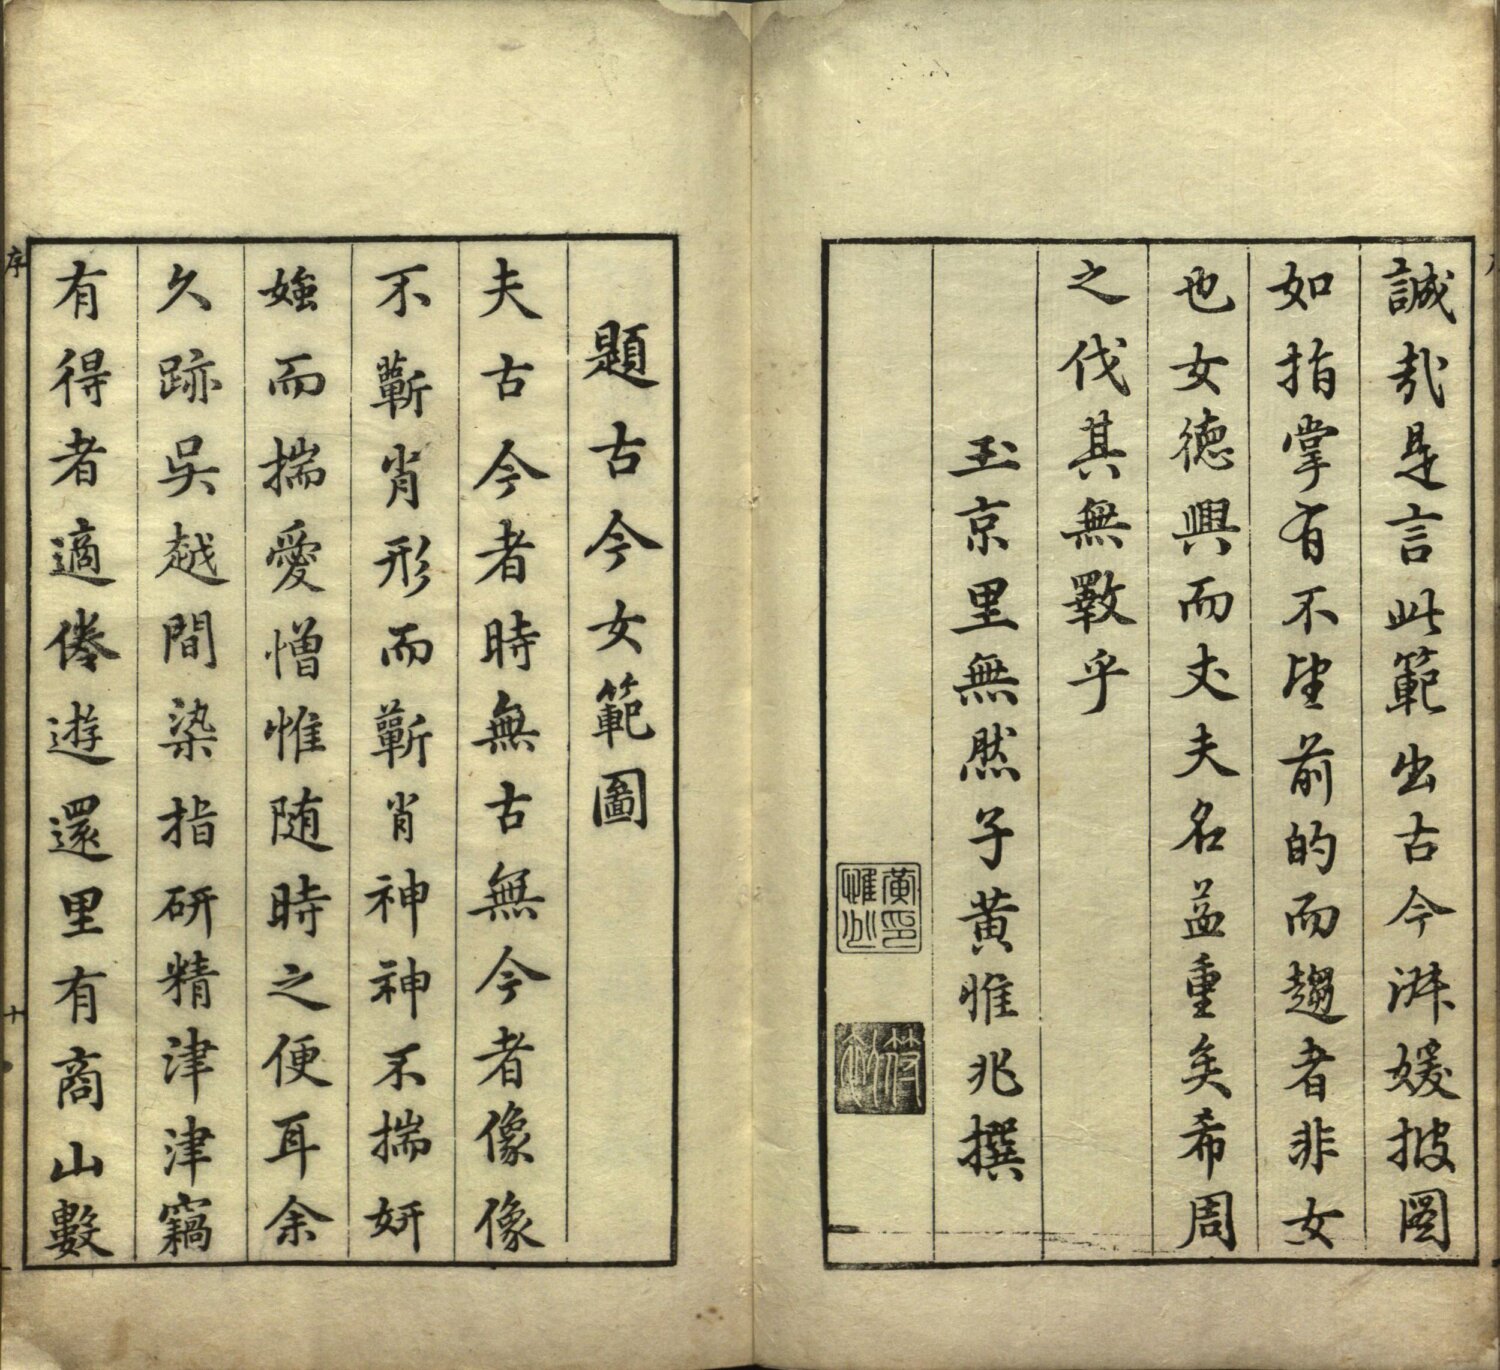 誠哉是言此範出古今淋媛披圖
如指掌有不望前的而趨者非女
也女德興而丈夫名益重矣希周
之伐其無斁乎
玉京里無然子黃惟兆撰
黃印惟兆
題古今女範圖
夫古今者時無古無今者像像
不蘄肖形而蘄肖神神不揣妍
媸而揣愛憎惟随時之便耳余
久跡吳越間染指研精津津竊
有得者適倦遊還里有商山數
序
十